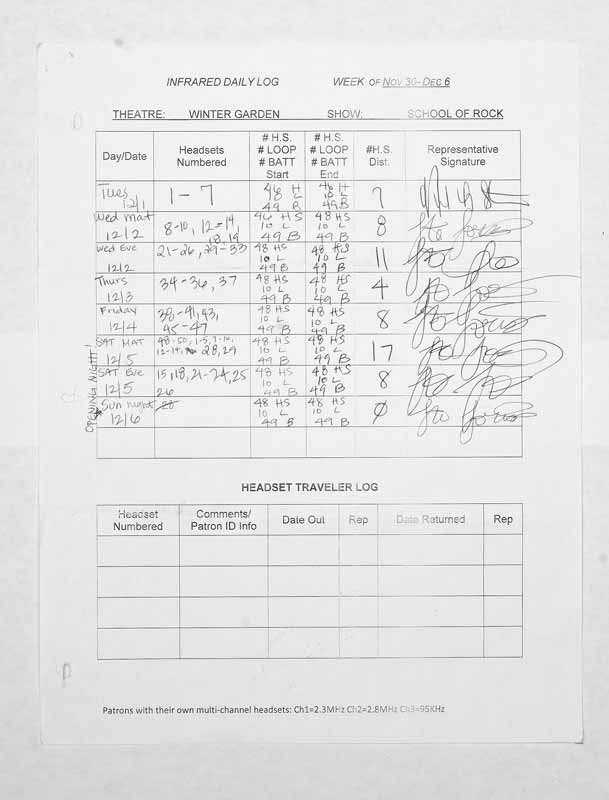 INFRARED DAILY LOG WEEK OF NOV 30- DEC 6
THEATRE: WINTER GARDEN SHOW: SCHOOL OF ROCK
Day/Date
Headsets Numbered
# H.S. # LOOP # BATT Start
# H.S. # LOOP # BATT End
#H.S. Dist.
Representative Signature
Tues 12/1
1-7
48 H L 49 B
L 49 B
7
Wed mat 12/2
8-10, 12-14, 18, 19
46 HS 10 L 49 B
48 HS 10 L 49 B
8
Wed Eve 12/2
21-26, 29-33
48 HS 10 L 49 B
48 HS 10 L 49 B
11
Thurs 12/3
34-36, 37
48 HS 10 L 49 B
48 HS 10 L 49 B
4
Friday 12/4
38-41, 43, 45-47
48 HS 10 L 49 B
48 HS 10 L 49 B
8
SAT MAT 12/5
48-50, 1-5, 7-10, 12-14, 28, 29
48 HS 10 L 49 B
48 HS 10 L 49 B
17
SAT Eve 12/5
15, 18, 21-24, 25 26
48 HS 10 L 49 B
48 HS 10 L 49 B
8
OPENING Night!
Sun night 12/6
48 HS 10 L 49 B
48 HS 10 L 49 B
0
HEADSET TRAVELER LOG
Headset Numbered
Comments/ Patron ID Info
Date Out
Rep
Date Returned
Rep
Patrons with their own multi-channel headsets: Ch1=2.3MHz Ch2=2.8MHz Ch3=95KHz